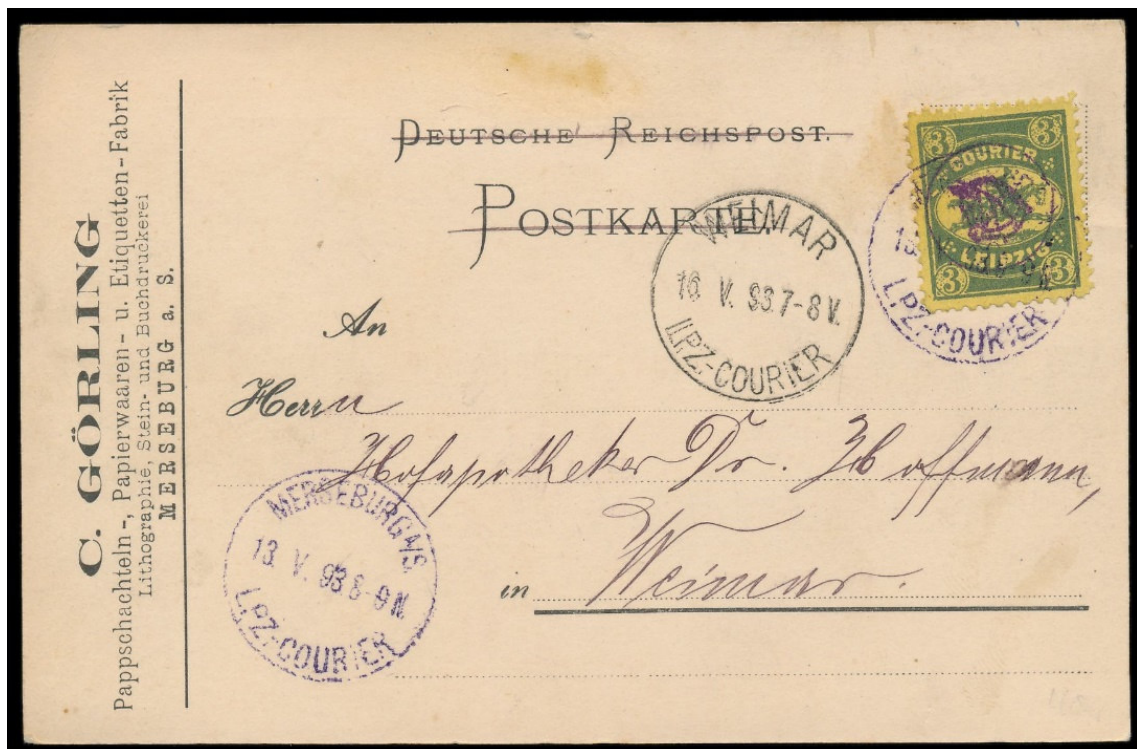 C. GÖRLING
Pappschachteln-, Papierwaaren- u. Etiquetten-Fabrik
Lithographie, Stein- und Buchdruckerei
MERSEBURG a. S.
DEUTSCHE REICHSPOST.
POSTKARTE.
3 3
COURIER
LEIPZIG
3 3
13 V. 93 8-9 N.
LPZ.-COURIER
WEIMAR
16 V. 93 7-8 V.
LPZ.-COURIER
An
Herrn
Hofapotheker Dr. Hoffmann,
in Weimar.
MERSEBURG A/S.
13 V. 93 8-9 N.
LPZ.-COURIER